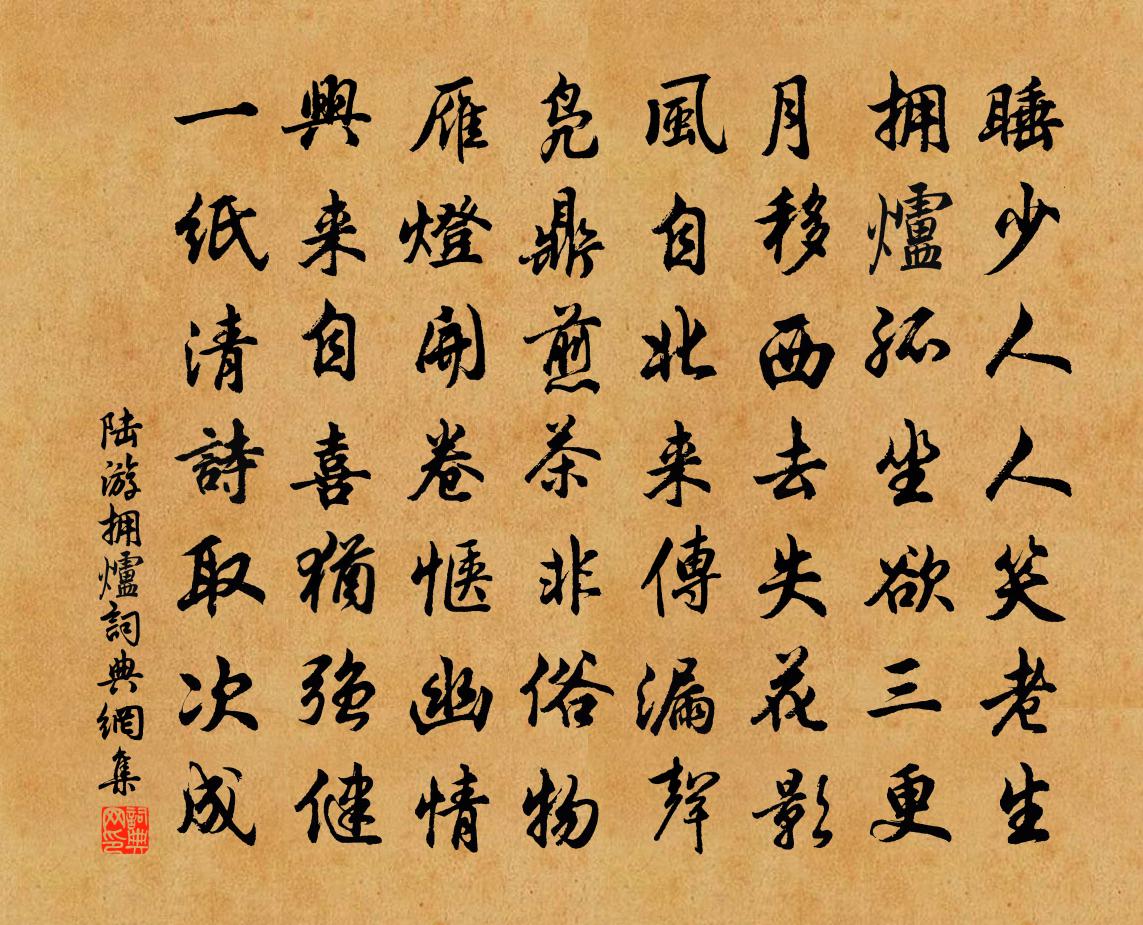 睡少人人笑老生
拥爐孤坐欲三更
月移西去失花影
風自北来傳漏聲
凫鼎煎茶非俗物
雁燈開卷愜幽情
興来自喜猶強健
一紙清詩取次成
陆游拥爐詞典網集
詞典网印